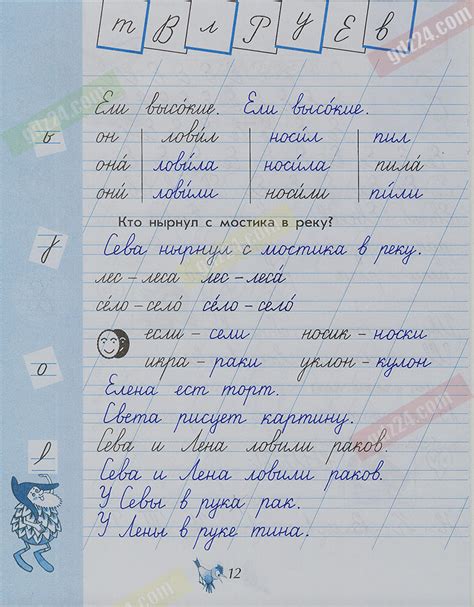 т В л Р У Е в
Ели высо́кие. Ели высо́кие.
ь он лови́л носи́л пил
она́ лови́ла носи́ла пила́
они́ лови́ли носи́ли пи́ли
Кто нырнул с мостика в реку?
Сева нырнул с мостика в реку.
лес – леса лес – леса́
се́ло – село́ се́ло – село́
если – сели носик – носки
о икра – раки уклон – кулон
Елена ест торт.
Света рисует картину.
Сева и Лена ловили раков.
Сева и Лена ловили раков.
У Севы в рука рак.
У Лены в руке тина.
12
gdz24.com
gdz24.com
gdz24.com
gdz24.com
gdz24.com